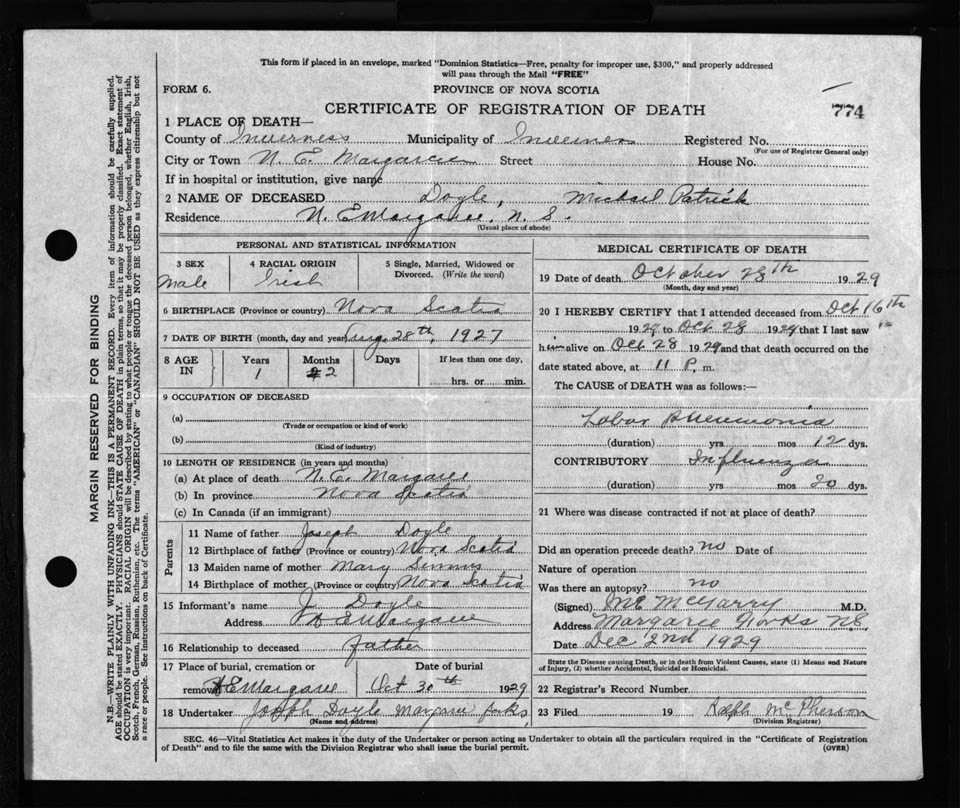 This form if placed in an envelope, marked "Dominion Statistics—Free, penalty for improper use, $300," and properly addressed
will pass through the Mail "FREE"
FORM 6.
PROVINCE OF NOVA SCOTIA
CERTIFICATE OF REGISTRATION OF DEATH
774
1 PLACE OF DEATH—
County of Inverness Municipality of Inverness Registered No.
(For use of Registrar General only)
City or Town N. E. Margaree Street House No.
If in hospital or institution, give name
2 NAME OF DECEASED Doyle, Michael Patrick
Residence N. E Margaree, N. S.
(Usual place of abode)
PERSONAL AND STATISTICAL INFORMATION
3 SEX
Male
4 RACIAL ORIGIN
Irish
5 Single, Married, Widowed or
Divorced. (Write the word)
6 BIRTHPLACE (Province or country) Nova Scotia
7 DATE OF BIRTH (month, day and year) Aug. 28th, 1927
8 AGE
IN
Years
1
Months
2
Days
If less than one day,
hrs. or min.
9 OCCUPATION OF DECEASED
(a)
(Trade or occupation or kind of work)
(b)
(Kind of industry)
10 LENGTH OF RESIDENCE (in years and months)
(a) At place of death N. E. Margaree
(b) In province Nova Scotia
(c) In Canada (if an immigrant)
Parents
11 Name of father Joseph Doyle
12 Birthplace of father (Province or country) Nova Scotia
13 Maiden name of mother Mary
14 Birthplace of mother (Province or country) Nova Scotia
15 Informant's name J. Doyle
Address N E Margaree
16 Relationship to deceased father
17 Place of burial, cremation or
removal N E Margaree
Date of burial
Oct 30th 1929
18 Undertaker Joseph Doyle Margaree forks,
(Name and address)
MEDICAL CERTIFICATE OF DEATH
19 Date of death October 28th 1929
(Month, day and year)
20 I HEREBY CERTIFY that I attended deceased from Oct 16th
1929 to Oct 28 1929 that I last saw
him alive on Oct 28 1929 and that death occurred on the
date stated above, at 11 P. m.
The CAUSE of DEATH was as follows:—
Lobar Pneumonia
(duration) yrs mos 12 dys.
CONTRIBUTORY Influenza
(duration) yrs mos 20 dys.
21 Where was disease contracted if not at place of death?
Did an operation precede death? no Date of
Nature of operation
Was there an autopsy? no
(Signed) McGarry M.D.
Address Margaree Forks N.S.
Date Dec 2nd 1929
State the Disease causing Death, or in death from Violent Causes, state (1) Means and Nature
of Injury, (2) whether Accidental, Suicidal or Homicidal.
22 Registrar's Record Number
23 Filed 19 Ralph McPherson
(Division Registrar)
SEC. 46—Vital Statistics Act makes it the duty of the Undertaker or person acting as Undertaker to obtain all the particulars required in the "Certificate of Registration
of Death" and to file the same with the Division Registrar who shall issue the burial permit.
(OVER)
MARGIN RESERVED FOR BINDING
N.B.—WRITE PLAINLY WITH UNFADING INK—THIS IS A PERMANENT RECORD. Every item of information should be carefully supplied.
AGE should be stated EXACTLY. PHYSICIANS should STATE CAUSE OF DEATH in plain terms, so that it may be properly classified. Exact statement of
OCCUPATION is very important. RACIAL ORIGIN will be described by stating to what people or tongue the deceased person belonged, whether English, Irish,
Scotch, French, German, Russian, Ruthenian, etc. The terms "AMERICAN" or "CANADIAN" SHOULD NOT BE USED as they express citizenship but not
a race or people. See instructions on back of Certificate.